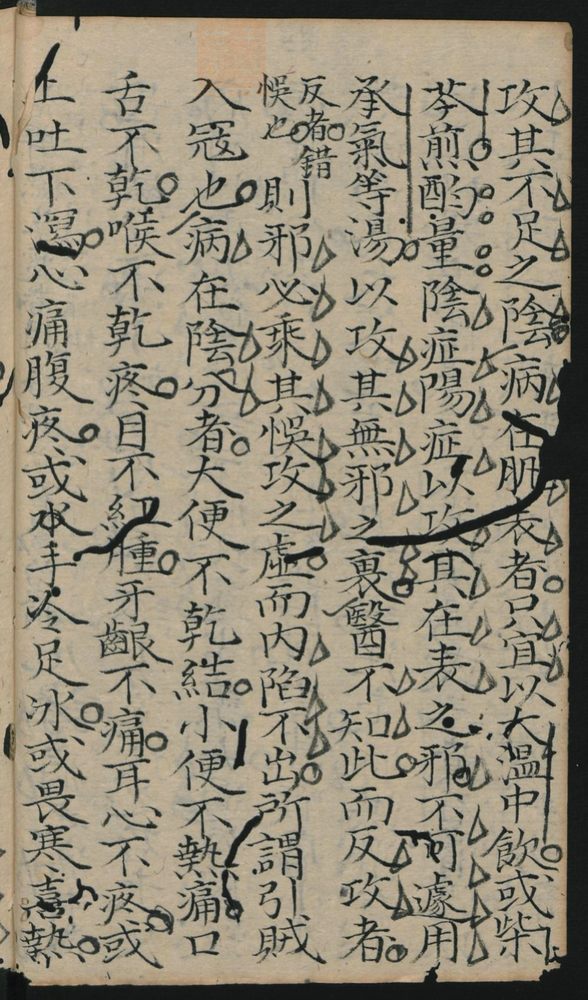 攻其不足之陰病在肌表者只宜以大溫中飲或柴
芩煎酌量陰症陽症以攻其在表之邪不可遽用
承氣等湯以攻其無邪之裏醫不知此而反攻者
反者錯
悞也
則邪必乘其悞攻之虛而內陷不出所謂引賊
入寇也病在陰分者大便不乾結小便不熱痛口
舌不乾喉不乾疼目不紅腫牙齦不痛耳心不疼或
上吐下瀉心痛腹疼或水手冷足冰或畏寒喜熱